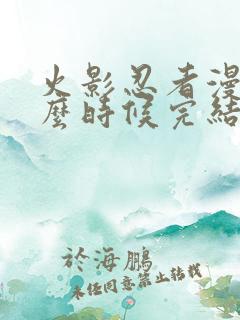 火影忍者漫
麼時候完結
於海鵬
未經同意禁止轉載